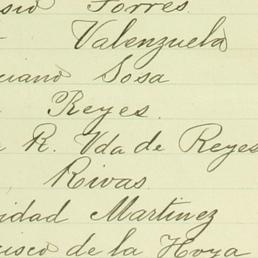 Torres.
Valenzuela
Sosa
Reyes.
R. Vda de Reyes
Rivas.
Martinez
de la Hoya